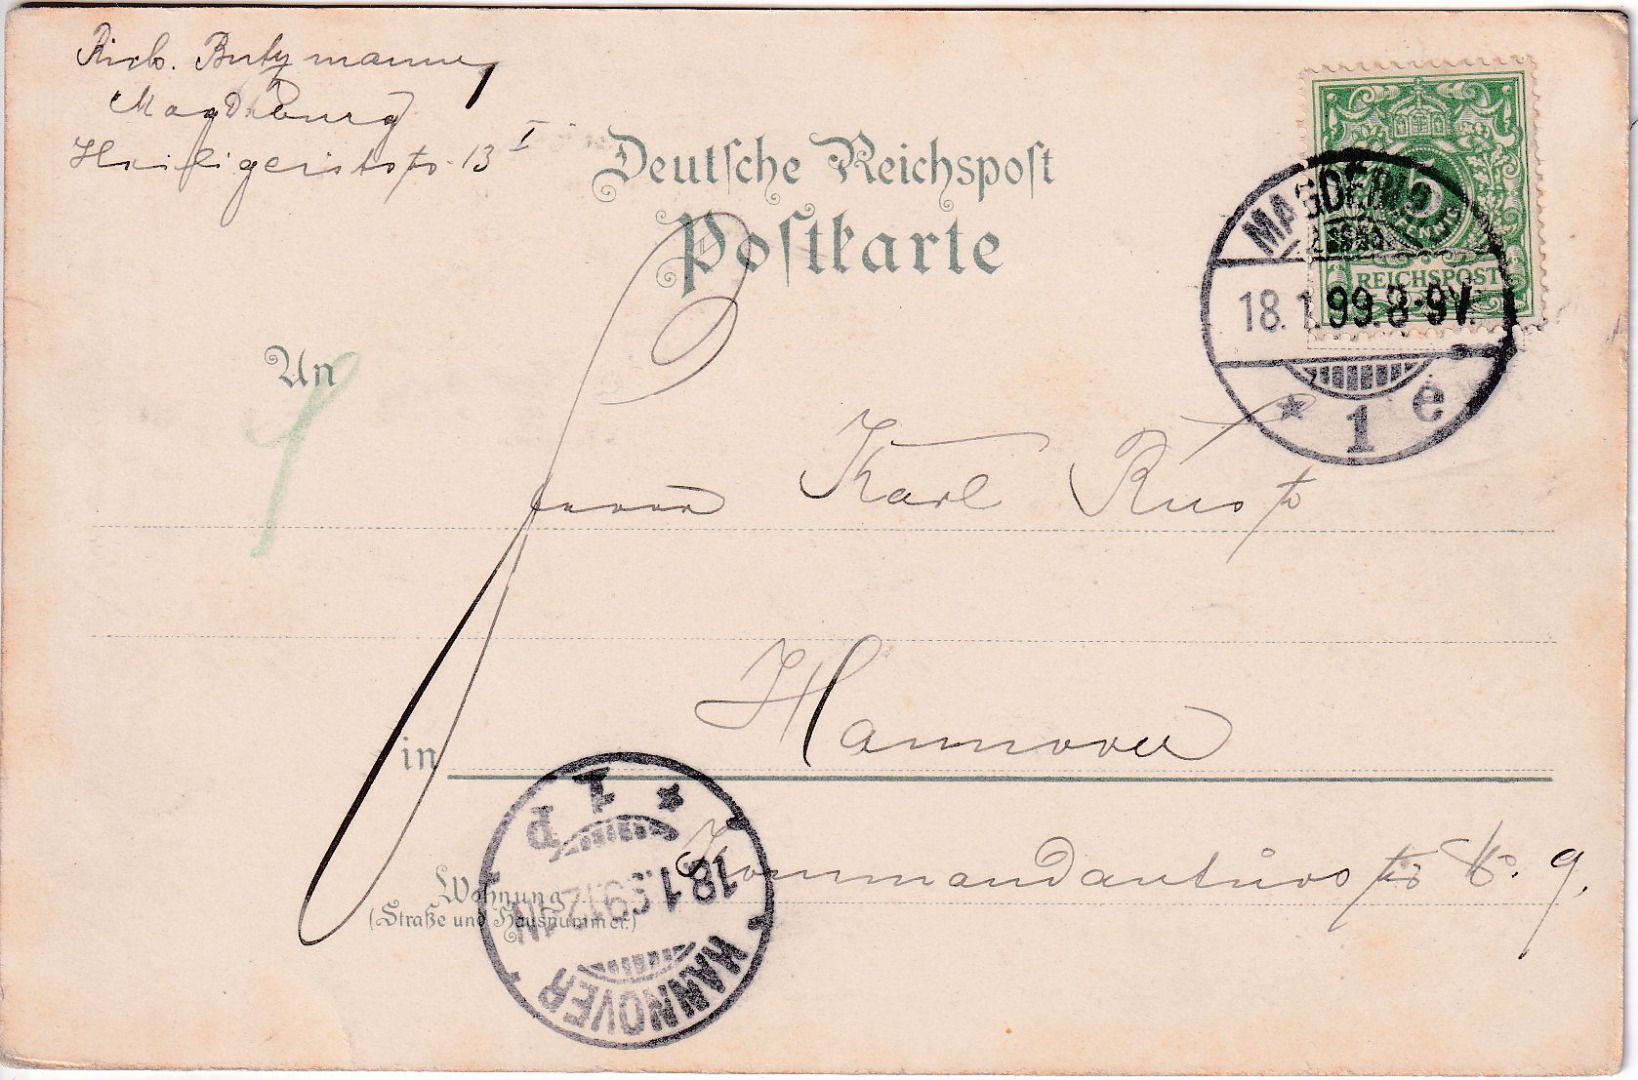 Rich. Butzmann,
Magdeburg
Heiligegeiststr. 13 I
Deutsche Reichspost
Postkarte
5
REICHSPOST
MAGDEBURG
18.1.99.8-9V.
* 1 e
An
Herrn Karl Rust
in Hannover
Wohnung
(Straße und Hausnummer)
Kommandanturstr. No. 9.
HANNOVER
18.1.99.12-1N
* 1 p